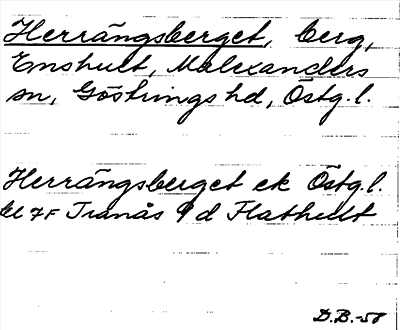 Herrängsberget, berg,
Enshult, Malexanders
sn, Göstrings hd, Östg.l.
Herrängsberget ek Östg.l.
bl 7F Tranås 9 d Flathult
D.B.-58